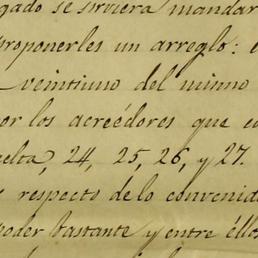 gado se sirviera mandar
proponerles un arreglo:
veintiuno del mismo
por los acreédores que
uelta, 24, 25, 26, y 27.
respecto de lo convenido
poder bastante y entre éllos